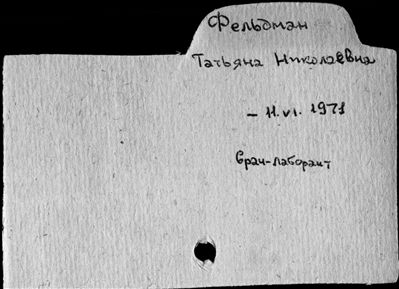 Фельдман
Татьяна Николаевна
– 11.VI. 1971
врач-лаборант